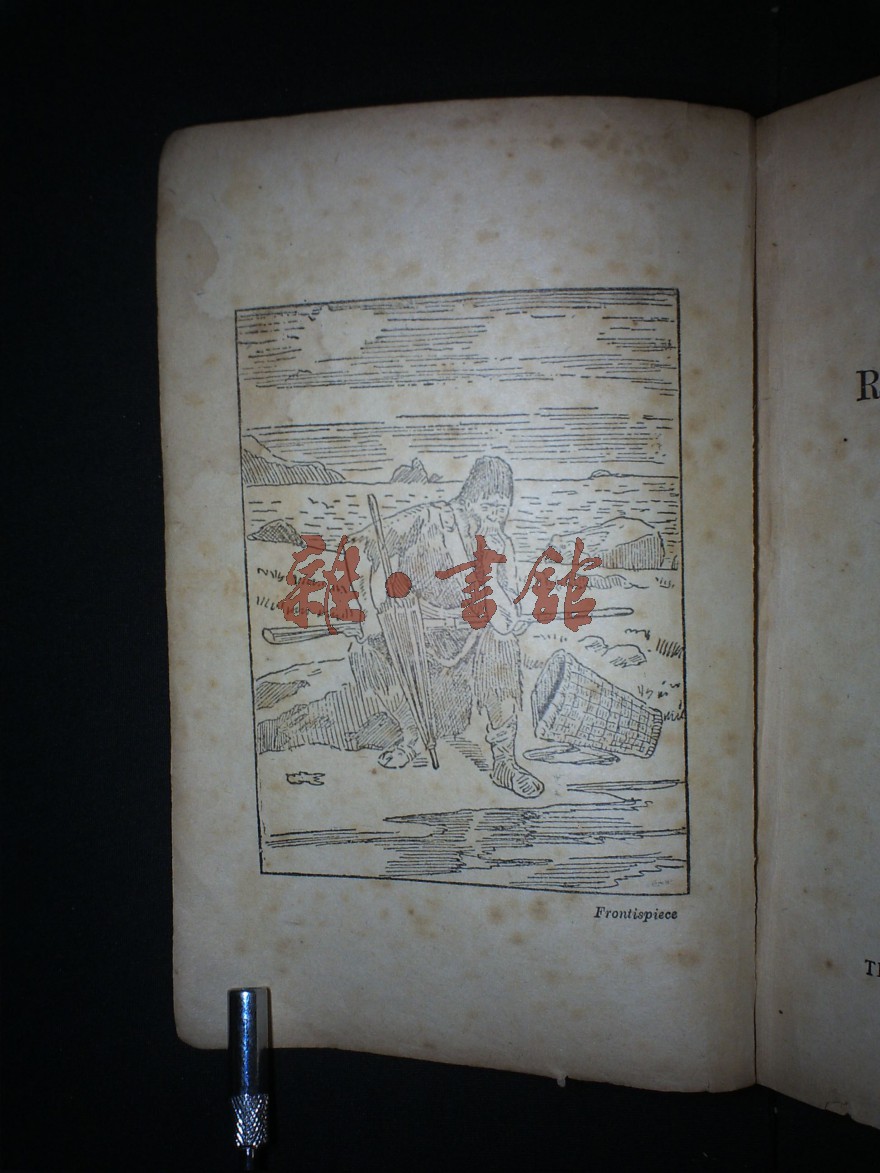 R
雜·書館
Frontispiece
TI